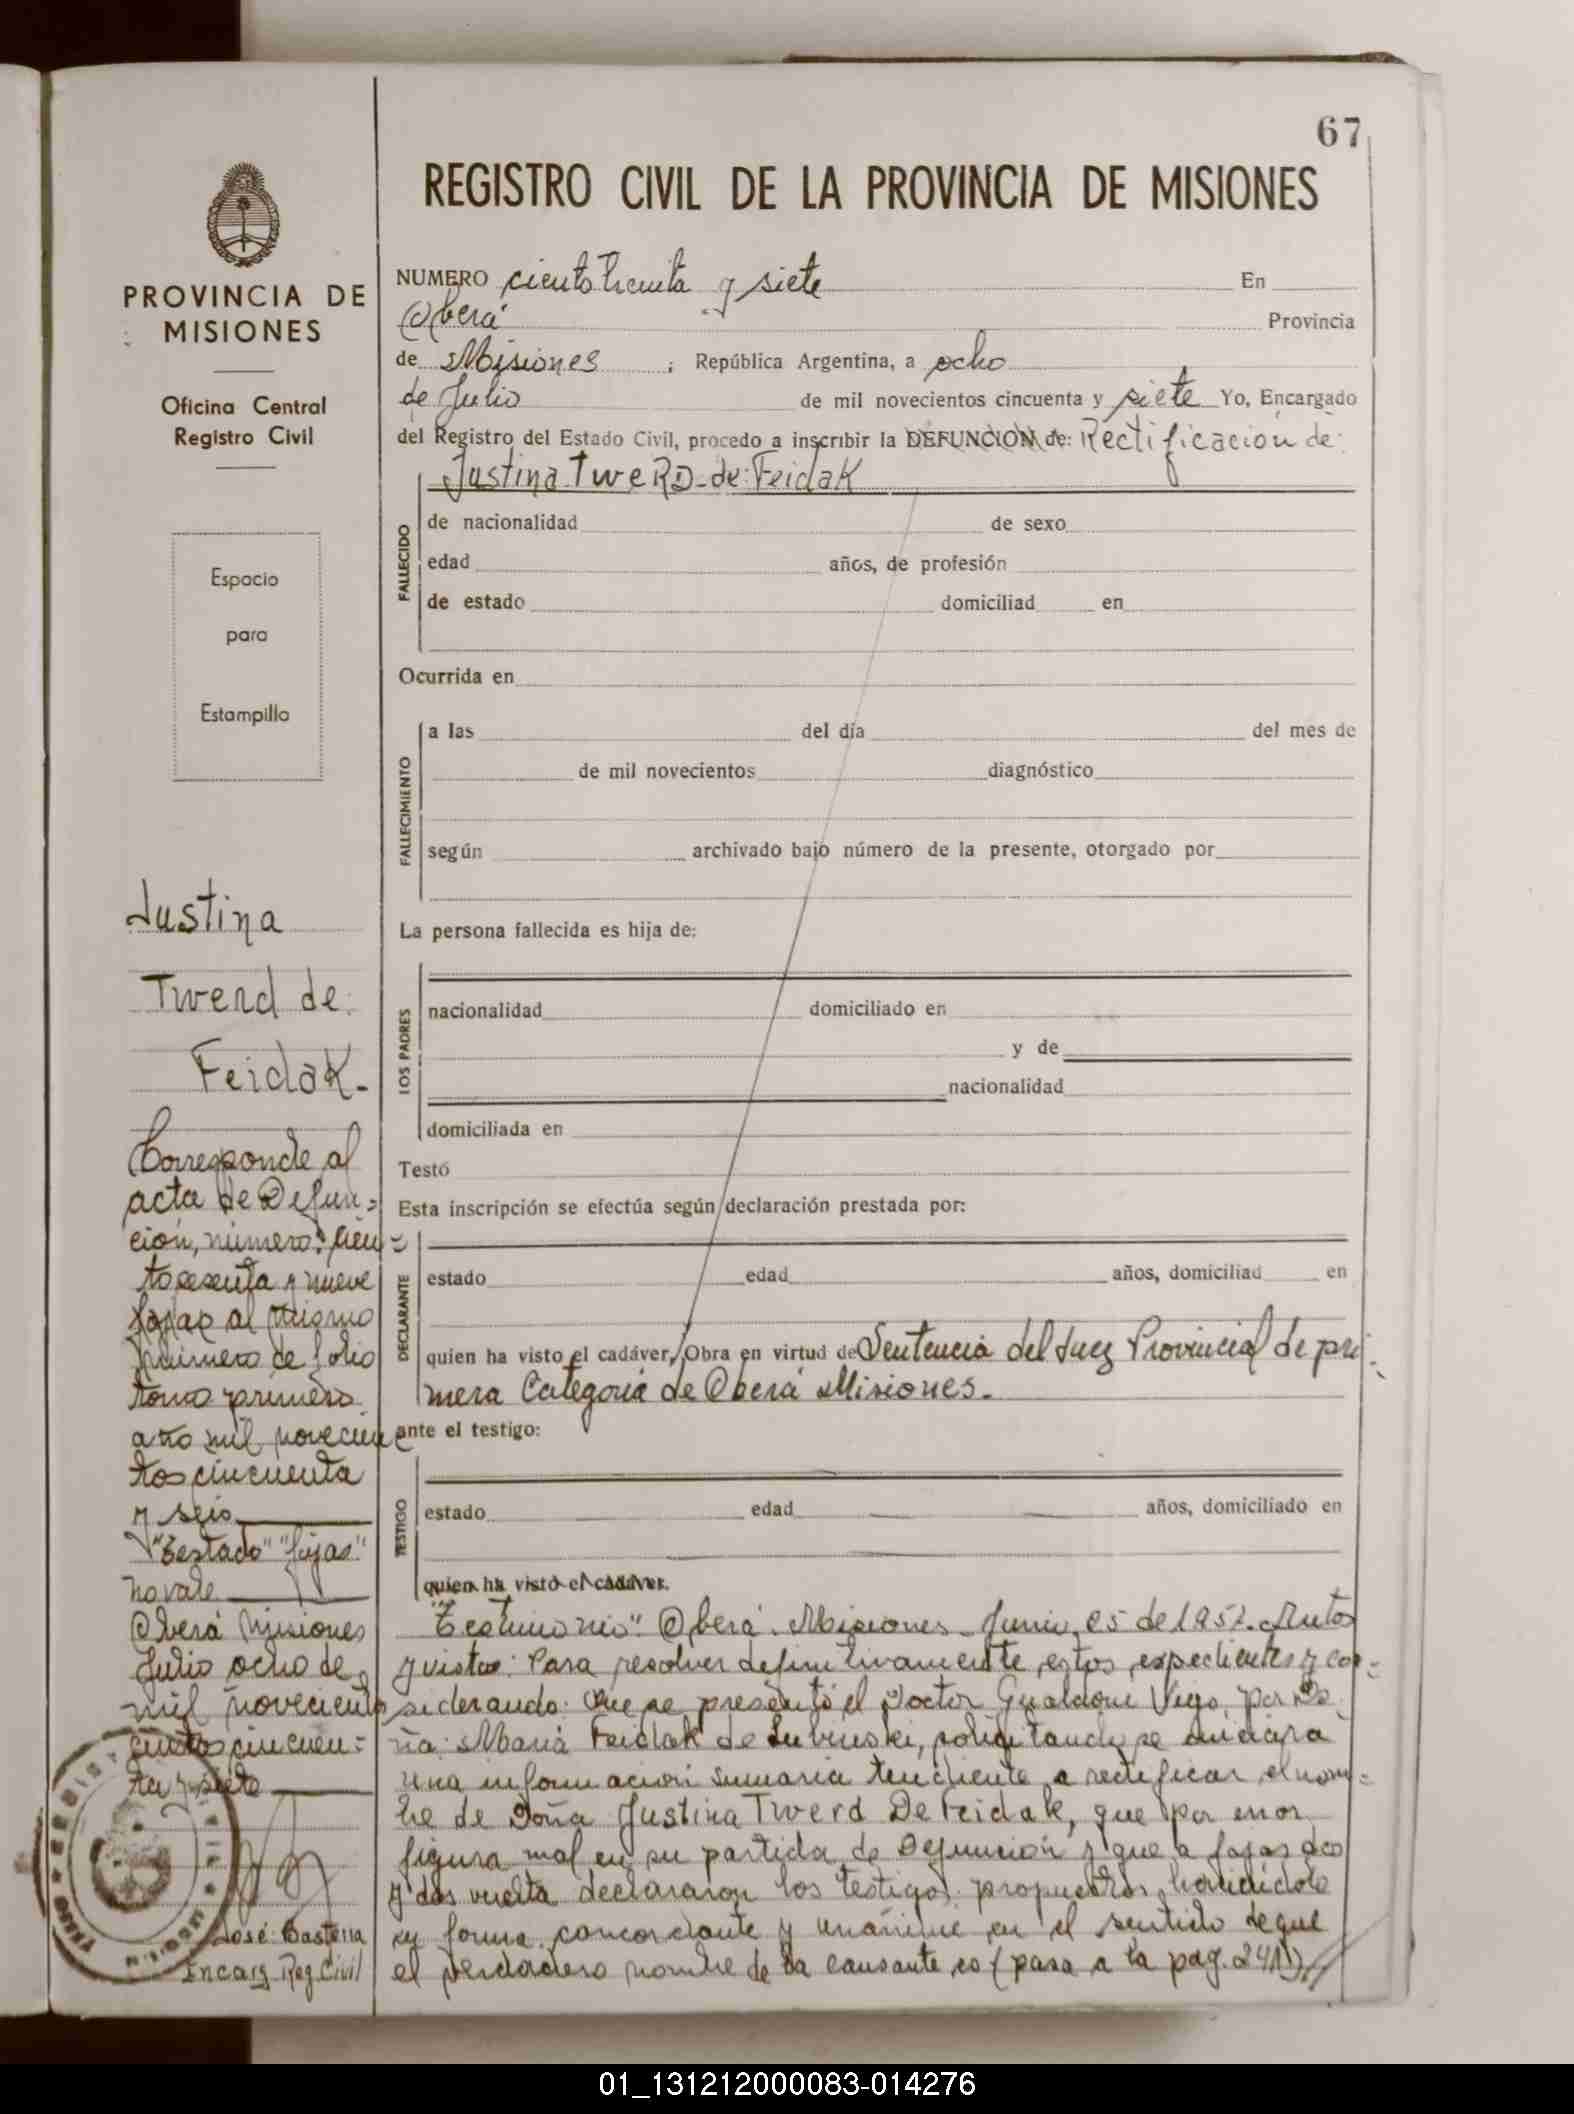 67
REGISTRO CIVIL DE LA PROVINCIA DE MISIONES
PROVINCIA DE
MISIONES
Oficina Central
Registro Civil
Espacio
para
Estampilla
Justina
Twerd de
Feidak.-
Corresponde al
acta de Defun=
ción, número: cien=
to sesenta y nueve
fojas al mismo
número de folio
tomo primero
año mil novecien
tos cincuenta
y seis
"Testado" "fojas"
no vale
Oberá Misiones
Julio ocho de
mil novecientos
cincuen=
ta y siete
José
Encarg. Reg. Civil
NUMERO ciento treinta y siete En
Oberá Provincia
de Misiones ; República Argentina, a ocho
de Julio de mil novecientos cincuenta y siete Yo, Encargado
del Registro del Estado Civil, procedo a inscribir la DEFUNCION de: Rectificacion de:
Justina TweRD de: Feidak
FALLECIDO
de nacionalidad de sexo
edad años, de profesión
de estado domiciliad en
Ocurrida en
FALLECIMIENTO
a las del día del mes de
de mil novecientos diagnóstico
según archivado bajo número de la presente, otorgado por
La persona fallecida es hija de:
LOS PADRES
nacionalidad domiciliado en
y de
nacionalidad
domiciliada en
Testó
Esta inscripción se efectúa según declaración prestada por:
DECLARANTE
estado edad años, domiciliad en
quien ha visto el cadáver, Obra en virtud de Sentencia del Juez Provincial de pri
mera Categoría de Oberá Misiones.-
ante el testigo:
TESTIGO
estado edad años, domiciliado en
quien ha visto el cadáver.
"Testimonio" Oberá. Misiones Junio, 25 de 1957. Autos
y vistos: Para resolver definitivamente estos expedientes y con=
siderando: Que se presentó el Doctor Gualdoni Vigo, por Do
ña: María Feidak de Lubinski, solicitando se iniciara
una informacion sumaria tendiente a rectificar el nom=
bre de Doña Justina Twerd De Feidak, que por error
figura mal en su partida de Defuncion y que a fojas dos
y dos vuelta declararon los testigos propuestos, haciéndolo
en forma concordante y unánime en el sentido de que
el verdadero nombre de la causante es (pasa a la pag. 241)
01_131212000083-014276